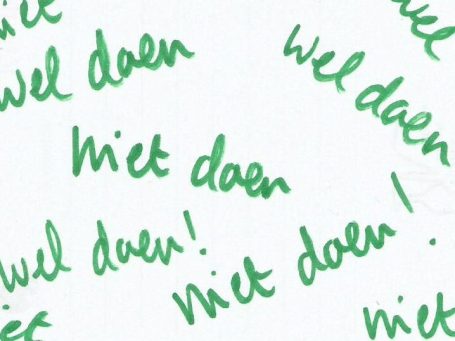 niet
wel
wel doen
wel doen
Niet doen
wel doen!
niet doen!
niet
niet